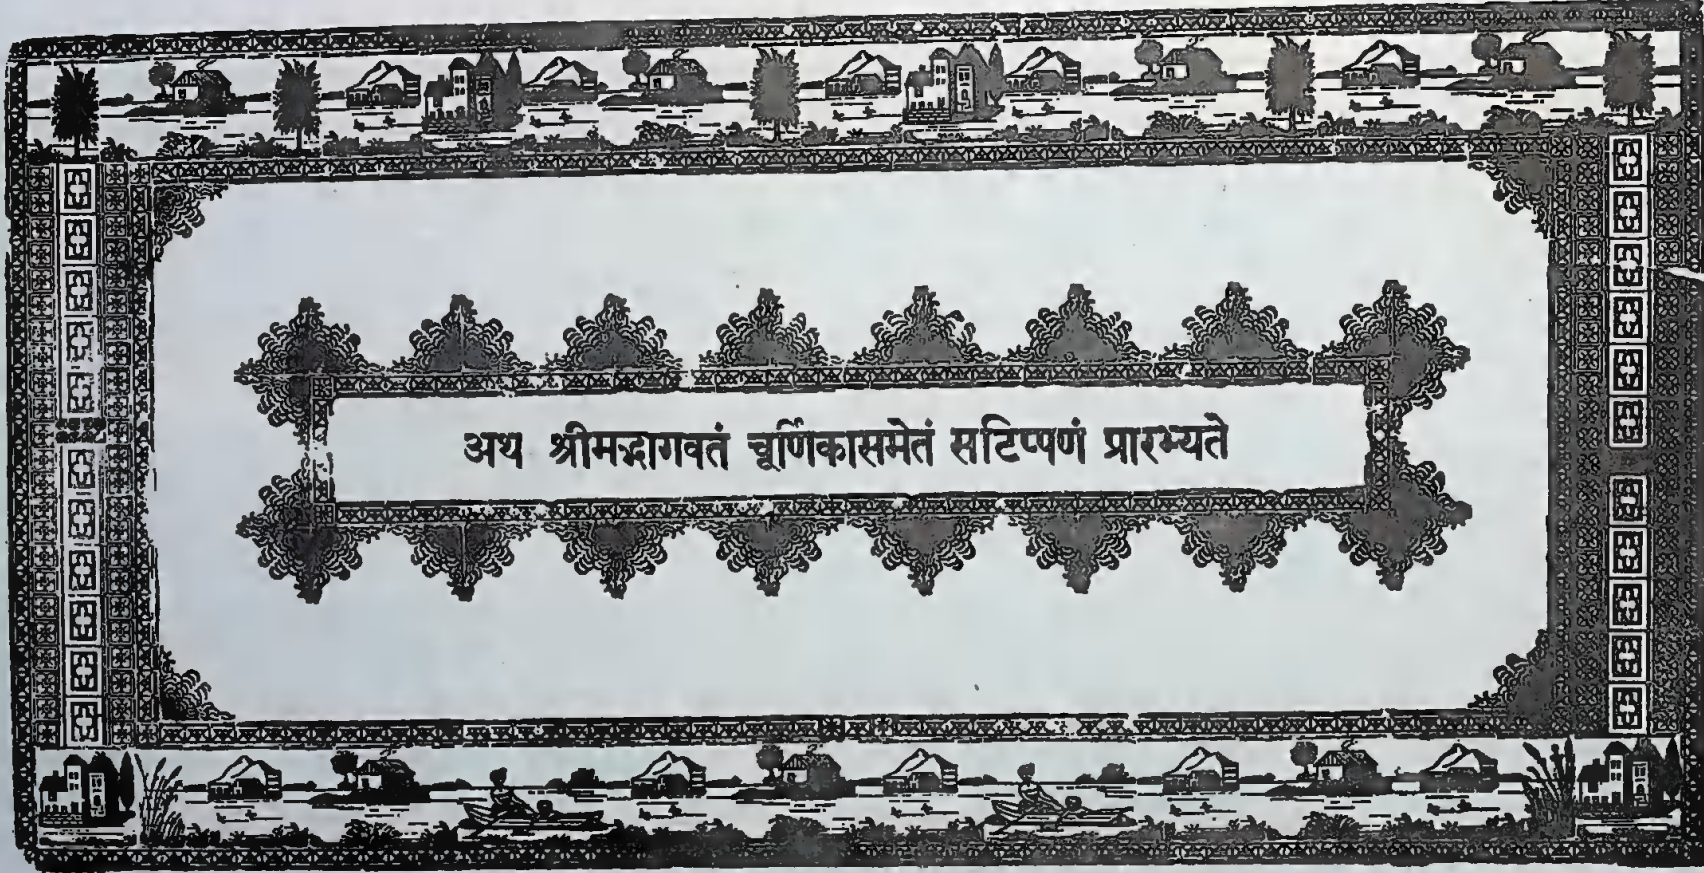 अथ श्रीमद्भागवतं चूर्णिकासमेतं सटिप्पणं प्रारभ्यते